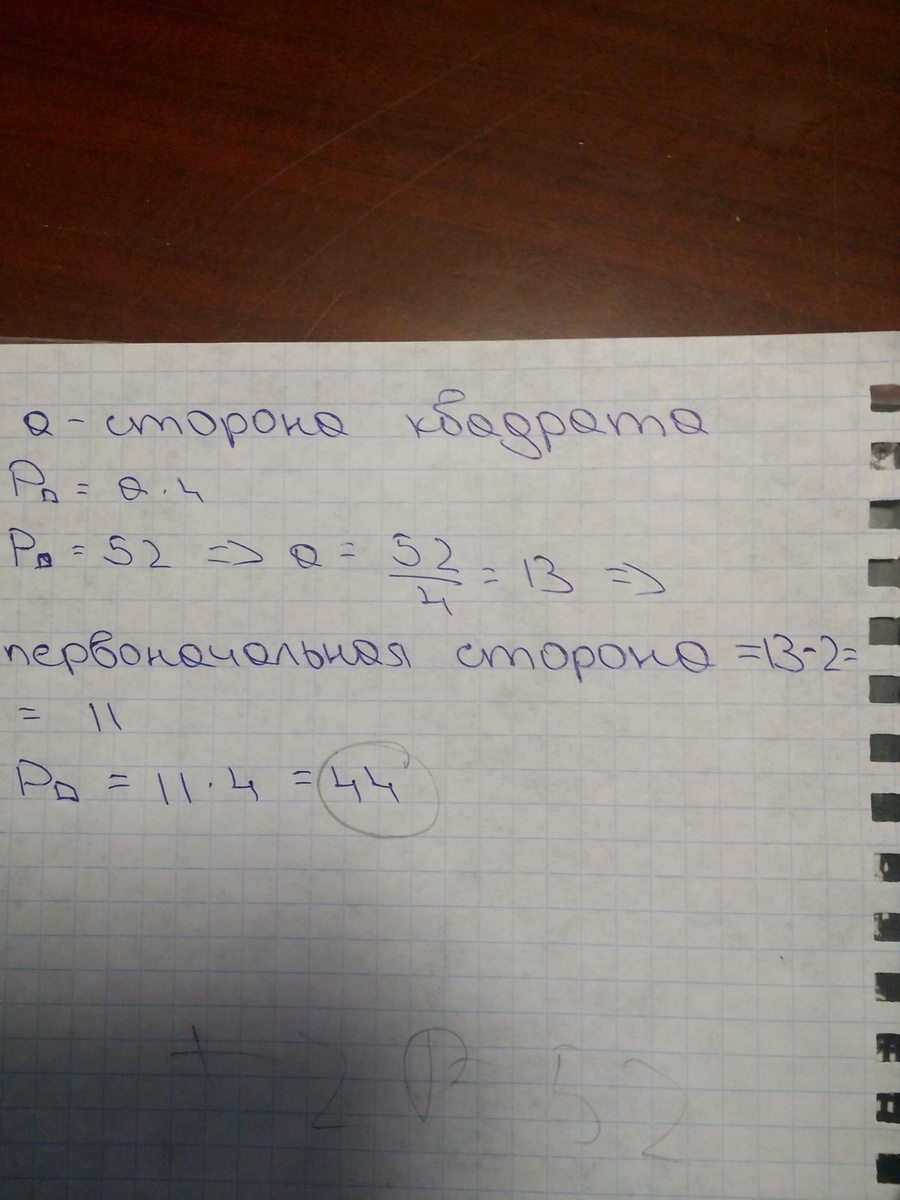 a - сторона квадрата
P□ = a · 4
P□ = 52 => a = 52/4 = 13 =>
первоначальная сторона = 13 - 2 =
= 11
P□ = 11 · 4 = 44
+ 2 P = 52